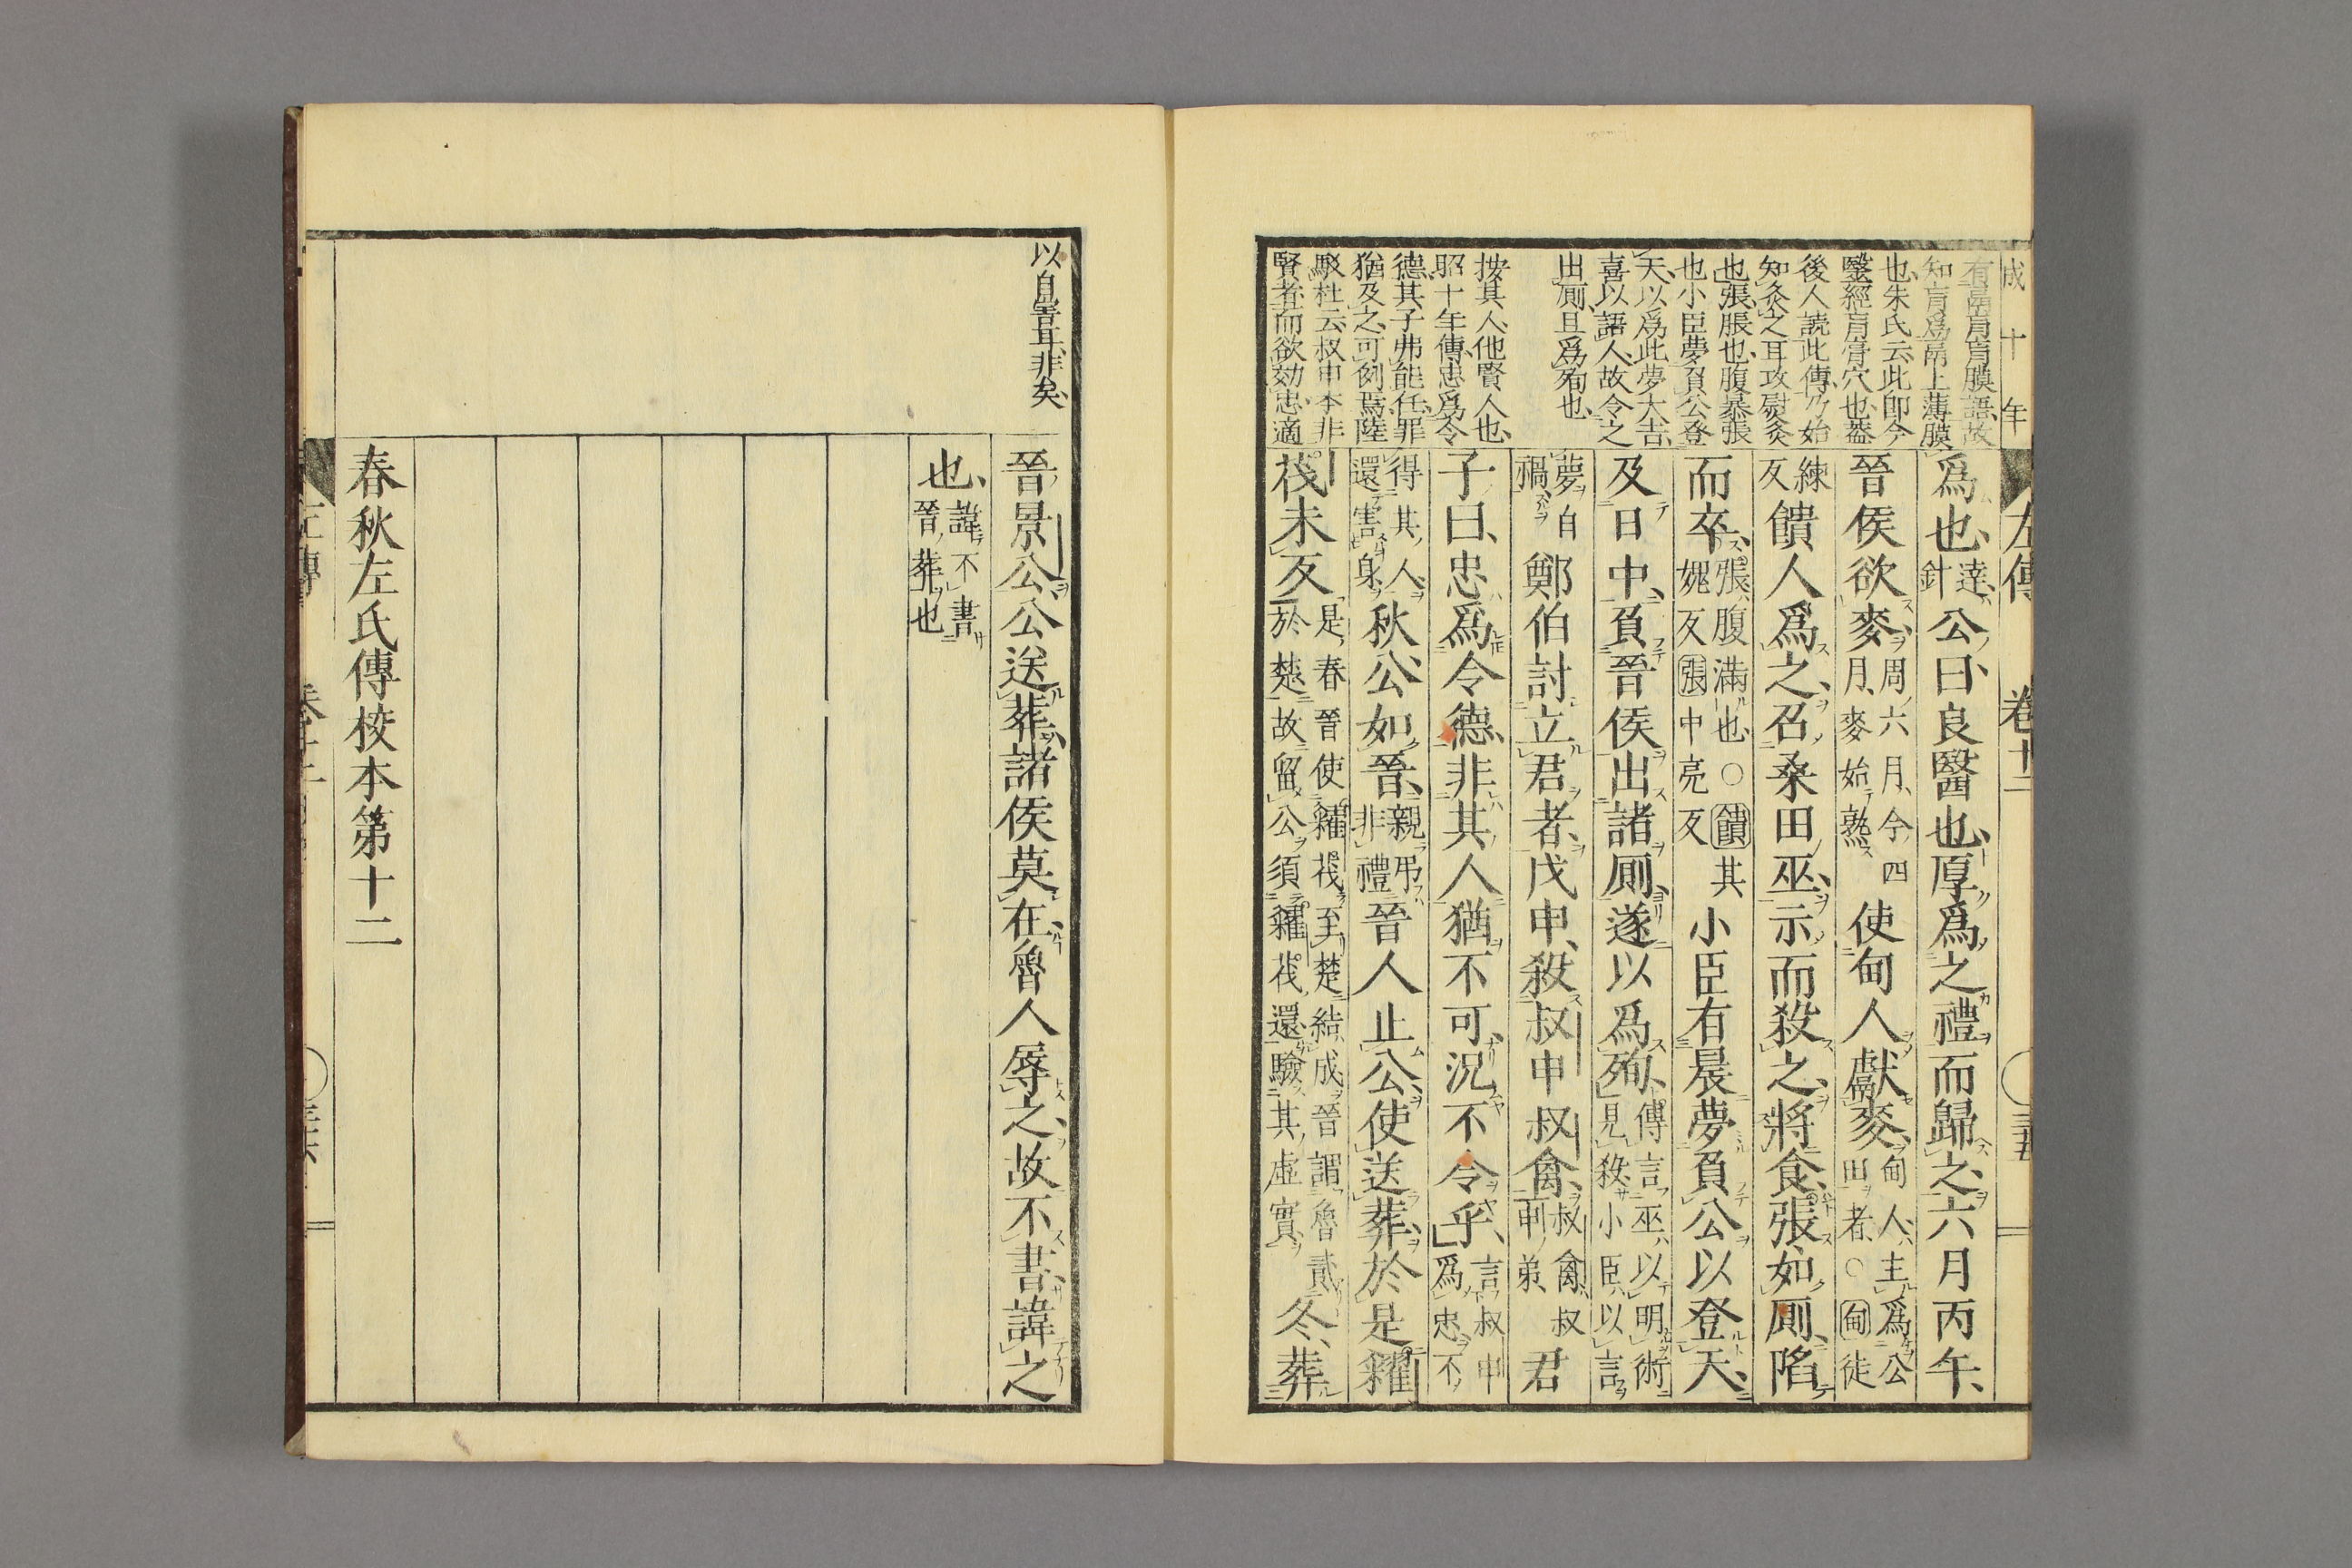 成十年
左傳 卷十二
有鬲肓肓膜語故
知肓爲鬲上薄膜
也朱氏云此卽今
醫經肓膏穴也蓋
後人読此傳乃始
知灸之耳攻熨灸
也張脹也腹暴張
也小臣夢負公登
天以爲此夢大吉
喜以語人故令之
出厠且爲殉也
按其人他賢人也
昭十年傳忠爲令
德其子弗能任罪
猶及之可例焉陸
駁杜云叔申本非
賢者而欲効忠適
爲也達針公曰良醫也厚爲之禮而歸之六月丙午
晉侯欲麥周六月今四月麥始熟使甸人獻麥甸人主爲公田者○甸徒
練反饋人爲之召桑田巫示而殺之將食張如厠陷
而卒張腹滿也○饋其媿反張中亮反小臣有晨夢負公以登天
及日中負晉侯出諸厠遂以爲殉傳言巫以明術見殺小臣以言
夢自禍鄭伯討立君者戊申殺叔申叔禽叔禽叔申弟君
子曰忠爲令德非其人猶不可況不令乎言叔申爲忠不
得其人還害身秋公如晉親弔非禮晉人止公使送葬於是糴
茷未反是春晉使糴茷至楚結成晉謂魯貳於楚故留公須糴茷還驗其虛實冬葬
以自害耳非矣
晉景公公送葬諸侯莫在魯人辱之故不書諱之
也諱不書晉葬也
春秋左氏傳校本第十二